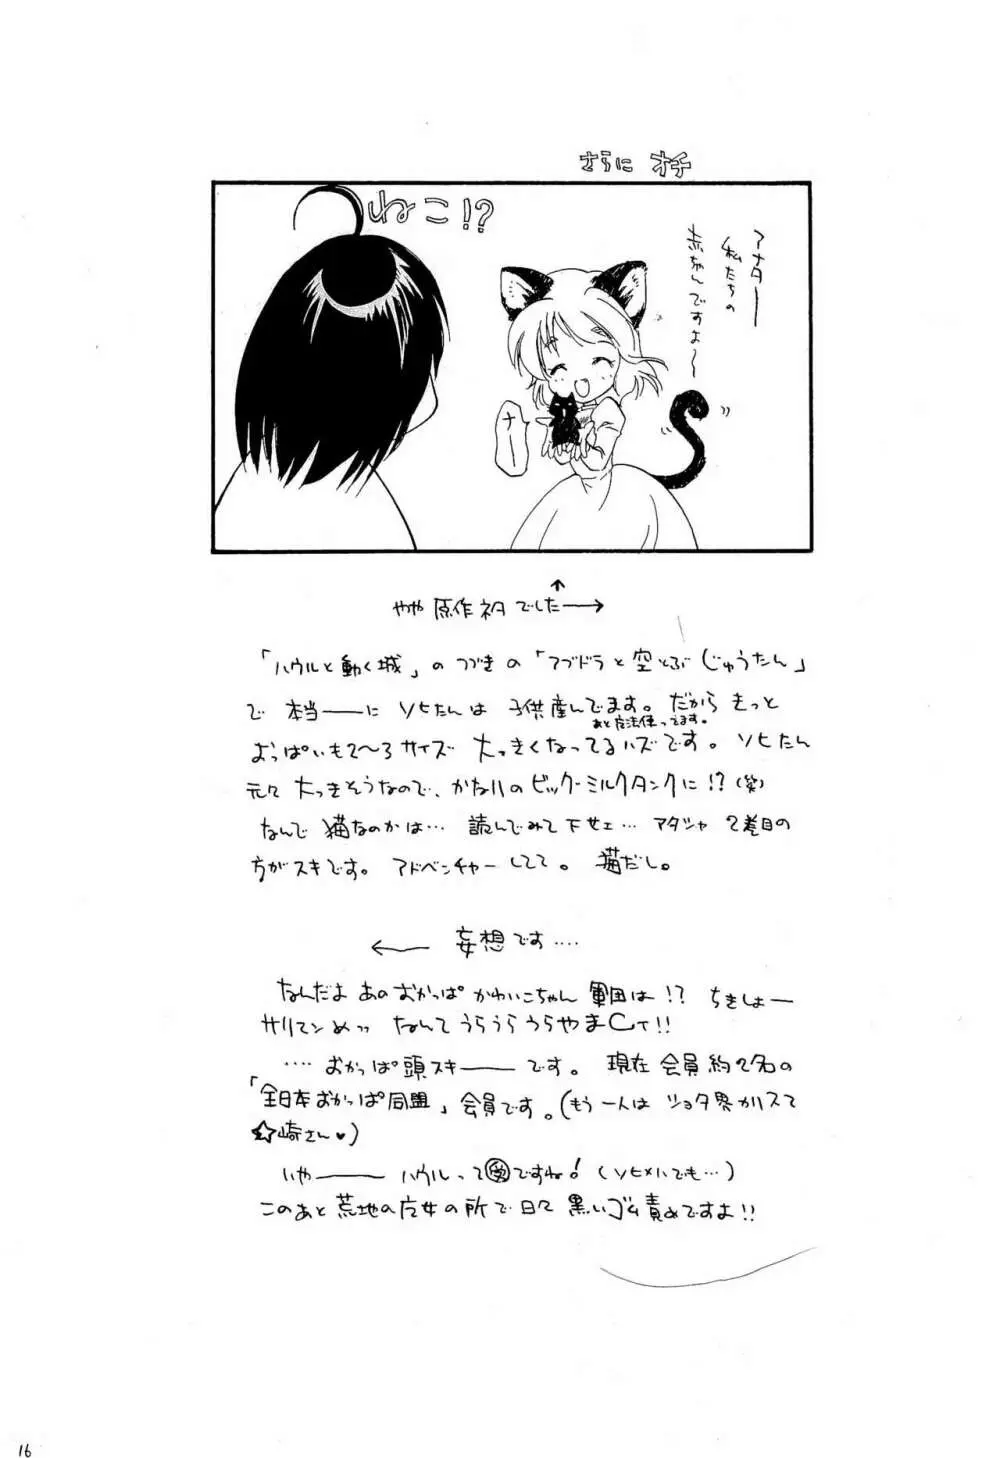 さらに オチ
ねこ!?
アナター
私たちの
赤ちゃんですよ〜
ナー
やや 原作ネタでした→
「ハウルと動く城」のつづきの「アブドラと空とぶじゅうたん」
で 本当──に ソヒたんは 子供産んでます。だからきっと
あと魔法使ってます。
おっぱいも2〜3サイズ 大っきくなってるハズです。ソヒたん
元々大っきそうなので、かなりのビックーミルクタンクに!?(笑)
なんで 猫なのかは… 読んでみて下サェ… アタシャ 2巻目の
方がスキです。アドベンチャーしてて。猫だし。
← 妄想です‥‥
なんだよ あのおかっぱ かわいこちゃん 軍団は!? ちきしょー
サリマンめッ なんてうらうらうらやまCィ!!
‥‥おかっぱ頭スキ──です。現在 会員約2名の
「全日本おかっぱ同盟」会員です。(もう一人は ショタ界カリスマ
☆崎さん♥)
いやーー ハウルって受ですね! (ソヒメハでも…)
このあと 荒地の魔女の所で 日々 黒いゴム責めですよ!!
16